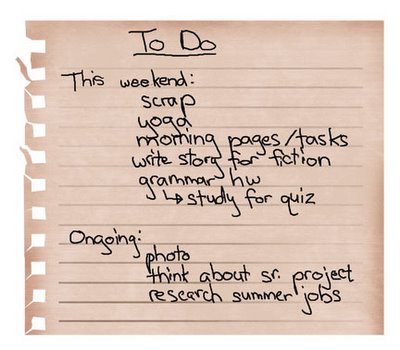 To Do
This weekend:
scrap
yoga
morning pages/tasks
write story for fiction
grammar hw
↳ study for quiz
Ongoing:
photo
think about sr. project
research summer jobs